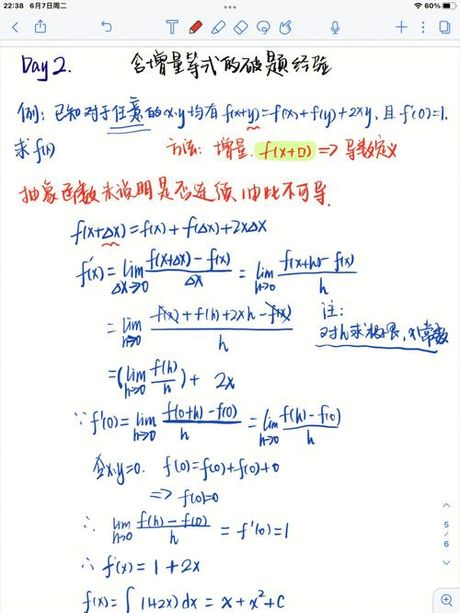 22:38 6月7日周二
60%
Day 2. 含增量等式的破题经验
例: 已知对于任意的x.y均有f(x+y)=f(x)+f(y)+2xy, 且f'(0)=1,
求f(x) 方法: 增量. f(x+□) => 导数定义
抽象函数未说明是否连续, 由此不可导.
f(x+Δx)=f(x)+f(Δx)+2xΔx
f'(x)=lim Δx→0 f(x+Δx)-f(x)/Δx = lim h→0 f(x+h)-f(x)/h
= lim h→0 f(x)+f(h)+2xh-f(x)/h 注:
对h求极限, x常数
=(lim h→0 f(h)/h)+2x
∵f'(0)=lim h→0 f(0+h)-f(0)/h = lim h→0 f(h)-f(0)/h
令x.y=0. f(0)=f(0)+f(0)+0
=> f(0)=0
∴ lim h→0 f(h)-f(0)/h = f'(0)=1
∴ f'(x)=1+2x
f(x)=∫(1+2x)dx = x+x²+C
5
6